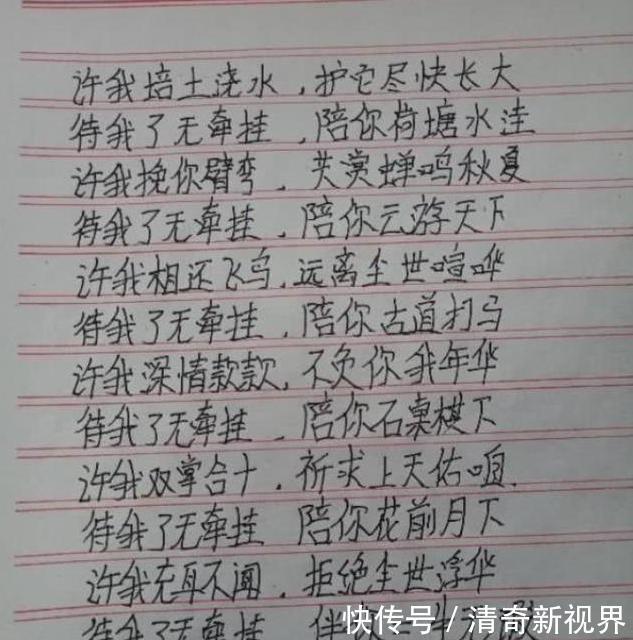 许我培土浇水，护它尽快长大
待我了无牵挂，陪你荷塘水洼
许我挽你臂弯，共赏蝉鸣秋夏
待我了无牵挂，陪你云游天下
许我相还飞鸟，远离尘世喧哗
待我了无牵挂，陪你古道打马
许我深情款款，不负你我年华
待我了无牵挂，陪你石桌棋下
许我双掌合十，祈求上天佑咱.
待我了无牵挂 陪你花前月下
许我充耳不闻，拒绝尘世浮华
待我了无牵挂
快传号/清奇新视界